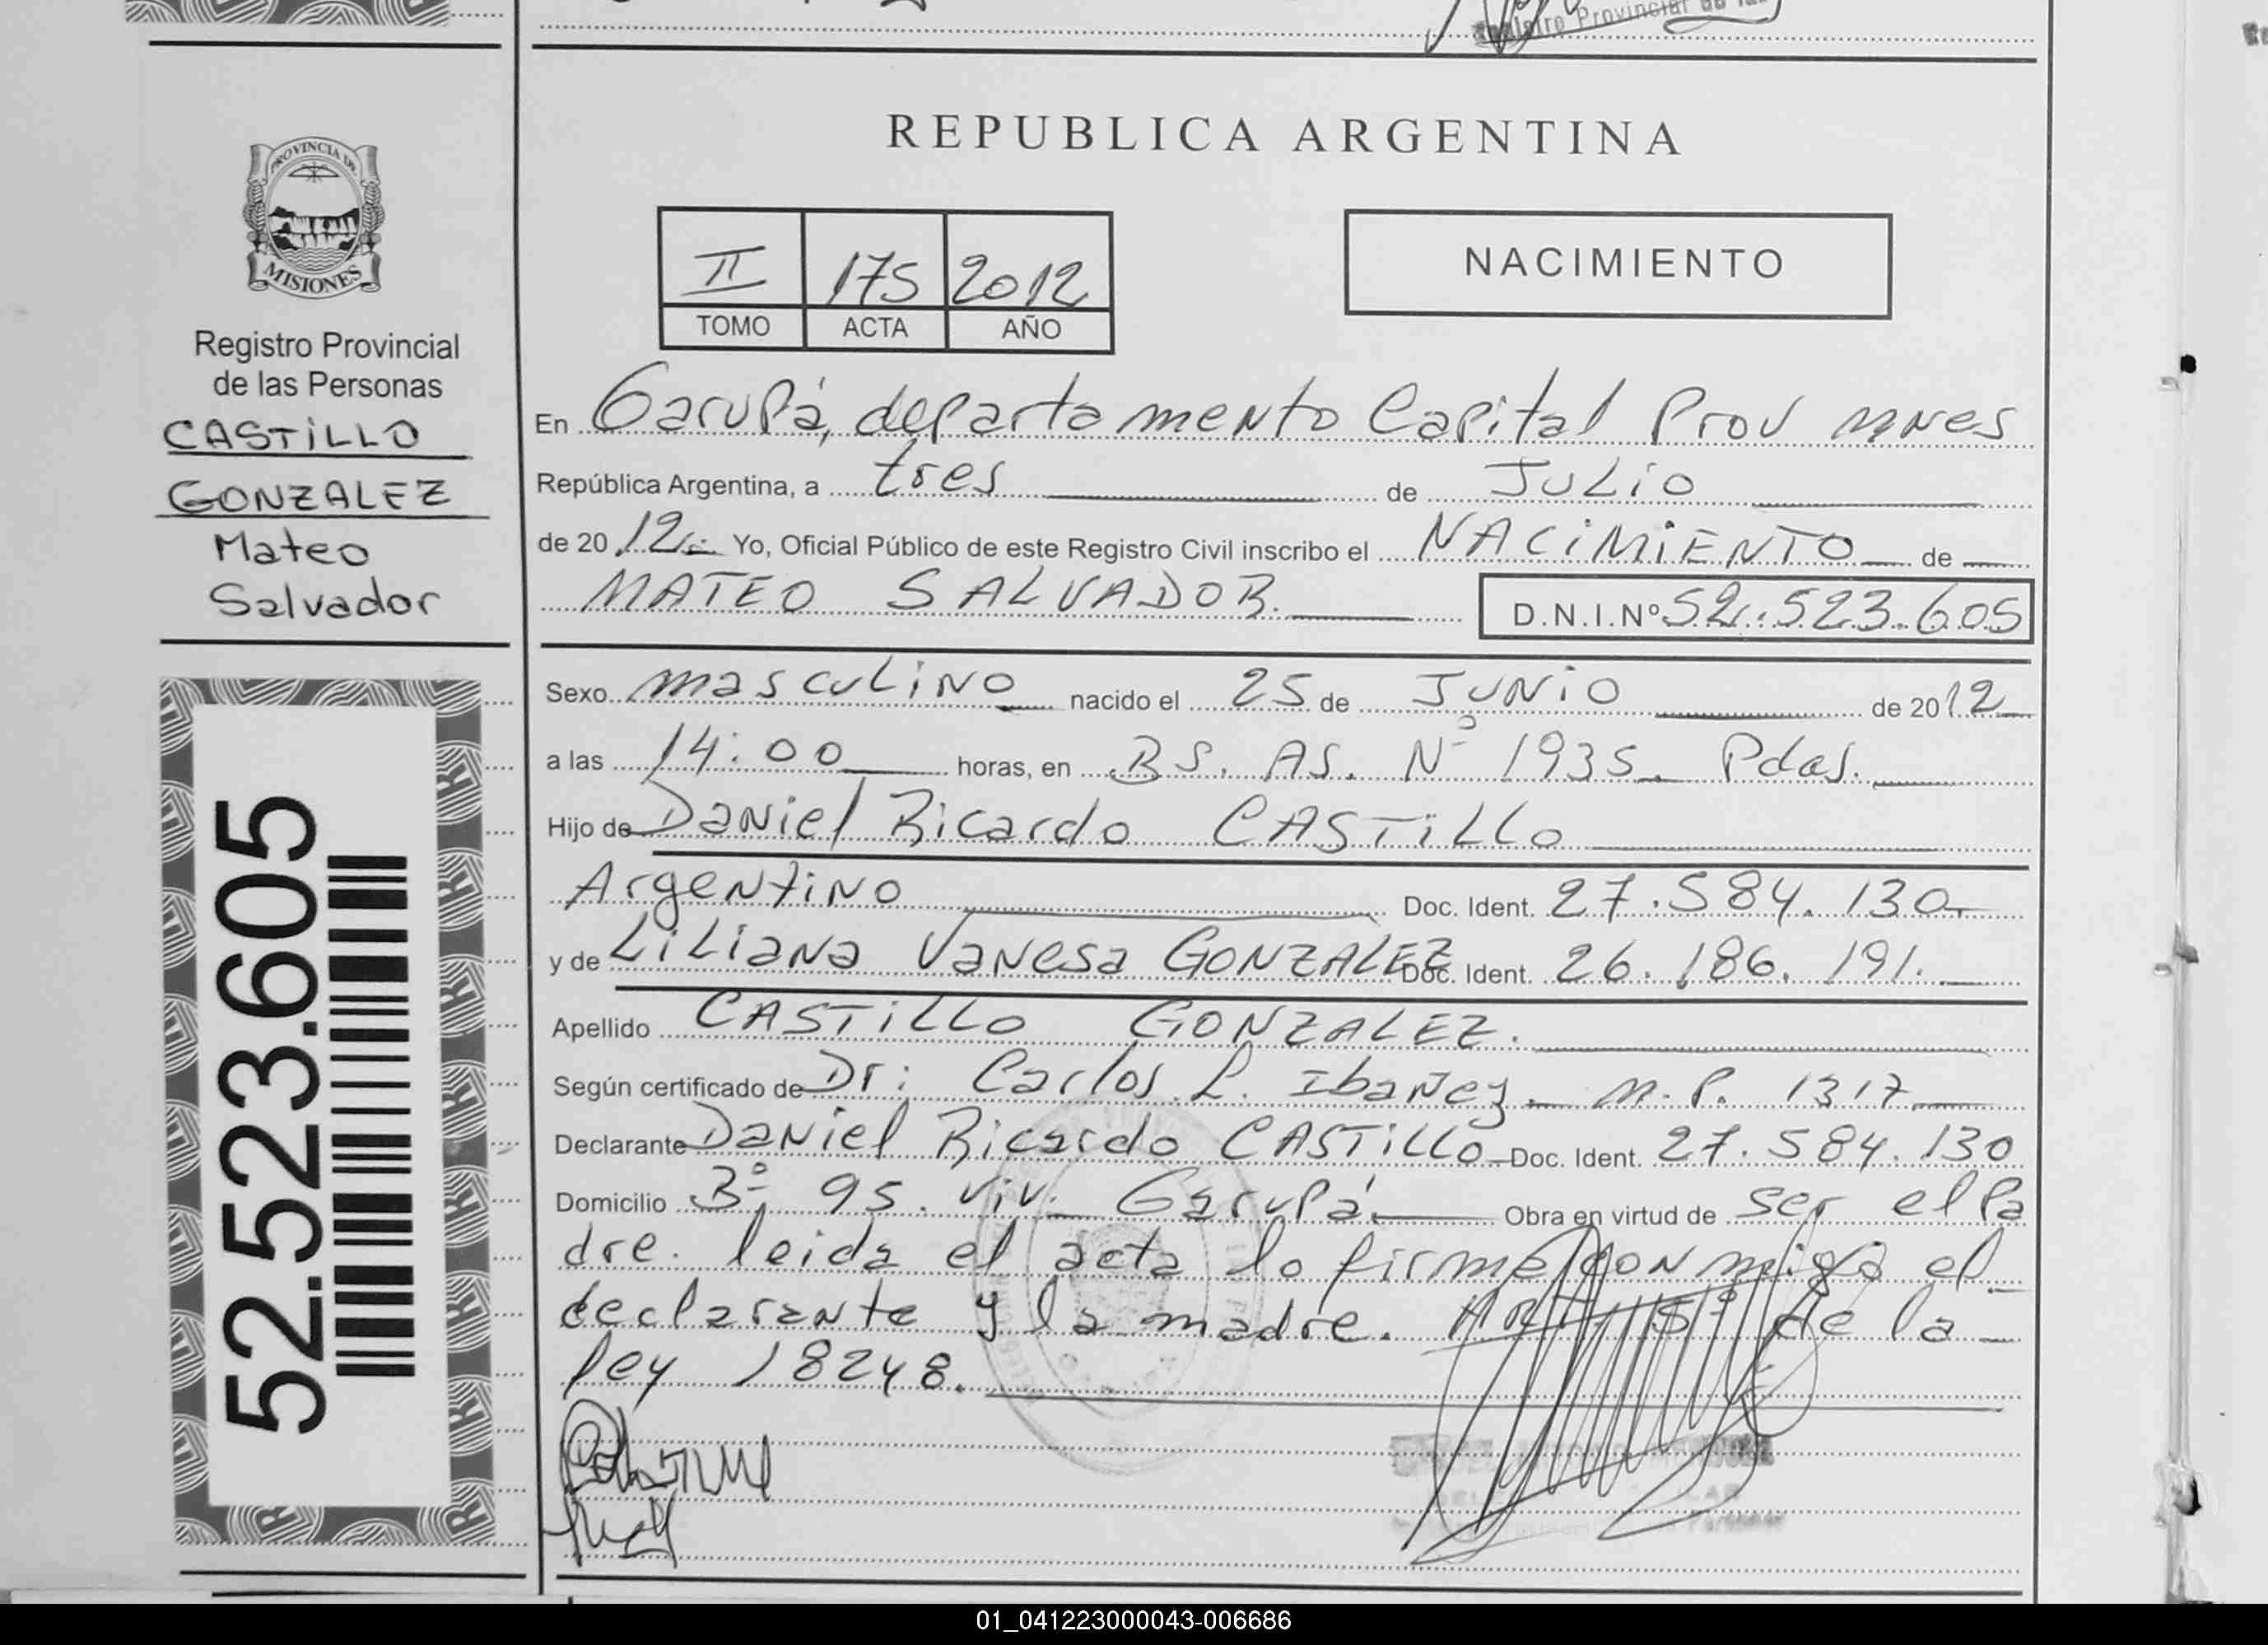 Registro Provincial de las
REPUBLICA ARGENTINA
PROVINCIA DE
MISIONES
Registro Provincial
de las Personas
CASTILLO
GONZALEZ
Mateo
Salvador
52.523.605
II 175 2012
TOMO ACTA AÑO
NACIMIENTO
En Garupá, departamento Capital Prov mnes
República Argentina, a tres de Julio
de 2012 Yo, Oficial Público de este Registro Civil inscribo el NACIMIENTO de
MATEO SALVADOR. D.N.I.Nº 52.523.605
Sexo masculino nacido el 25 de Junio de 2012
a las 14:00 horas, en BS. AS. Nº 1935. Pdas.
Hijo de Daniel Ricardo CASTILLO
Argentino Doc. Ident. 27.584.130
y de Liliana Vanesa GONZALEZ Doc. Ident. 26.186.191.
Apellido CASTILLO GONZALEZ.
Según certificado de Dr: Carlos L. Ibañez M.P. 1317
Declarante Daniel Ricardo CASTILLO Doc. Ident. 27.584.130
Domicilio Bº 95. viv. Garupá Obra en virtud de ser el Pa
dre. leida el acta lo firma conmigo el
declarante y la madre. ART 5º de la
ley 18248.
01_041223000043-006686